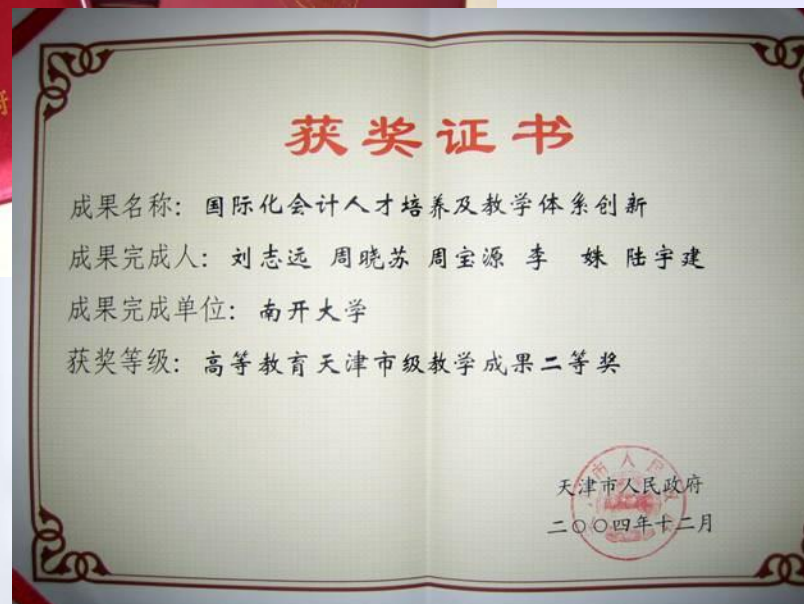 获奖证书
成果名称：国际化会计人才培养及教学体系创新
成果完成人：刘志远 周晓苏 周宝源 李 姝 陆宇建
成果完成单位：南开大学
获奖等级：高等教育天津市级教学成果二等奖
天津市人民政府
二〇〇四年十二月